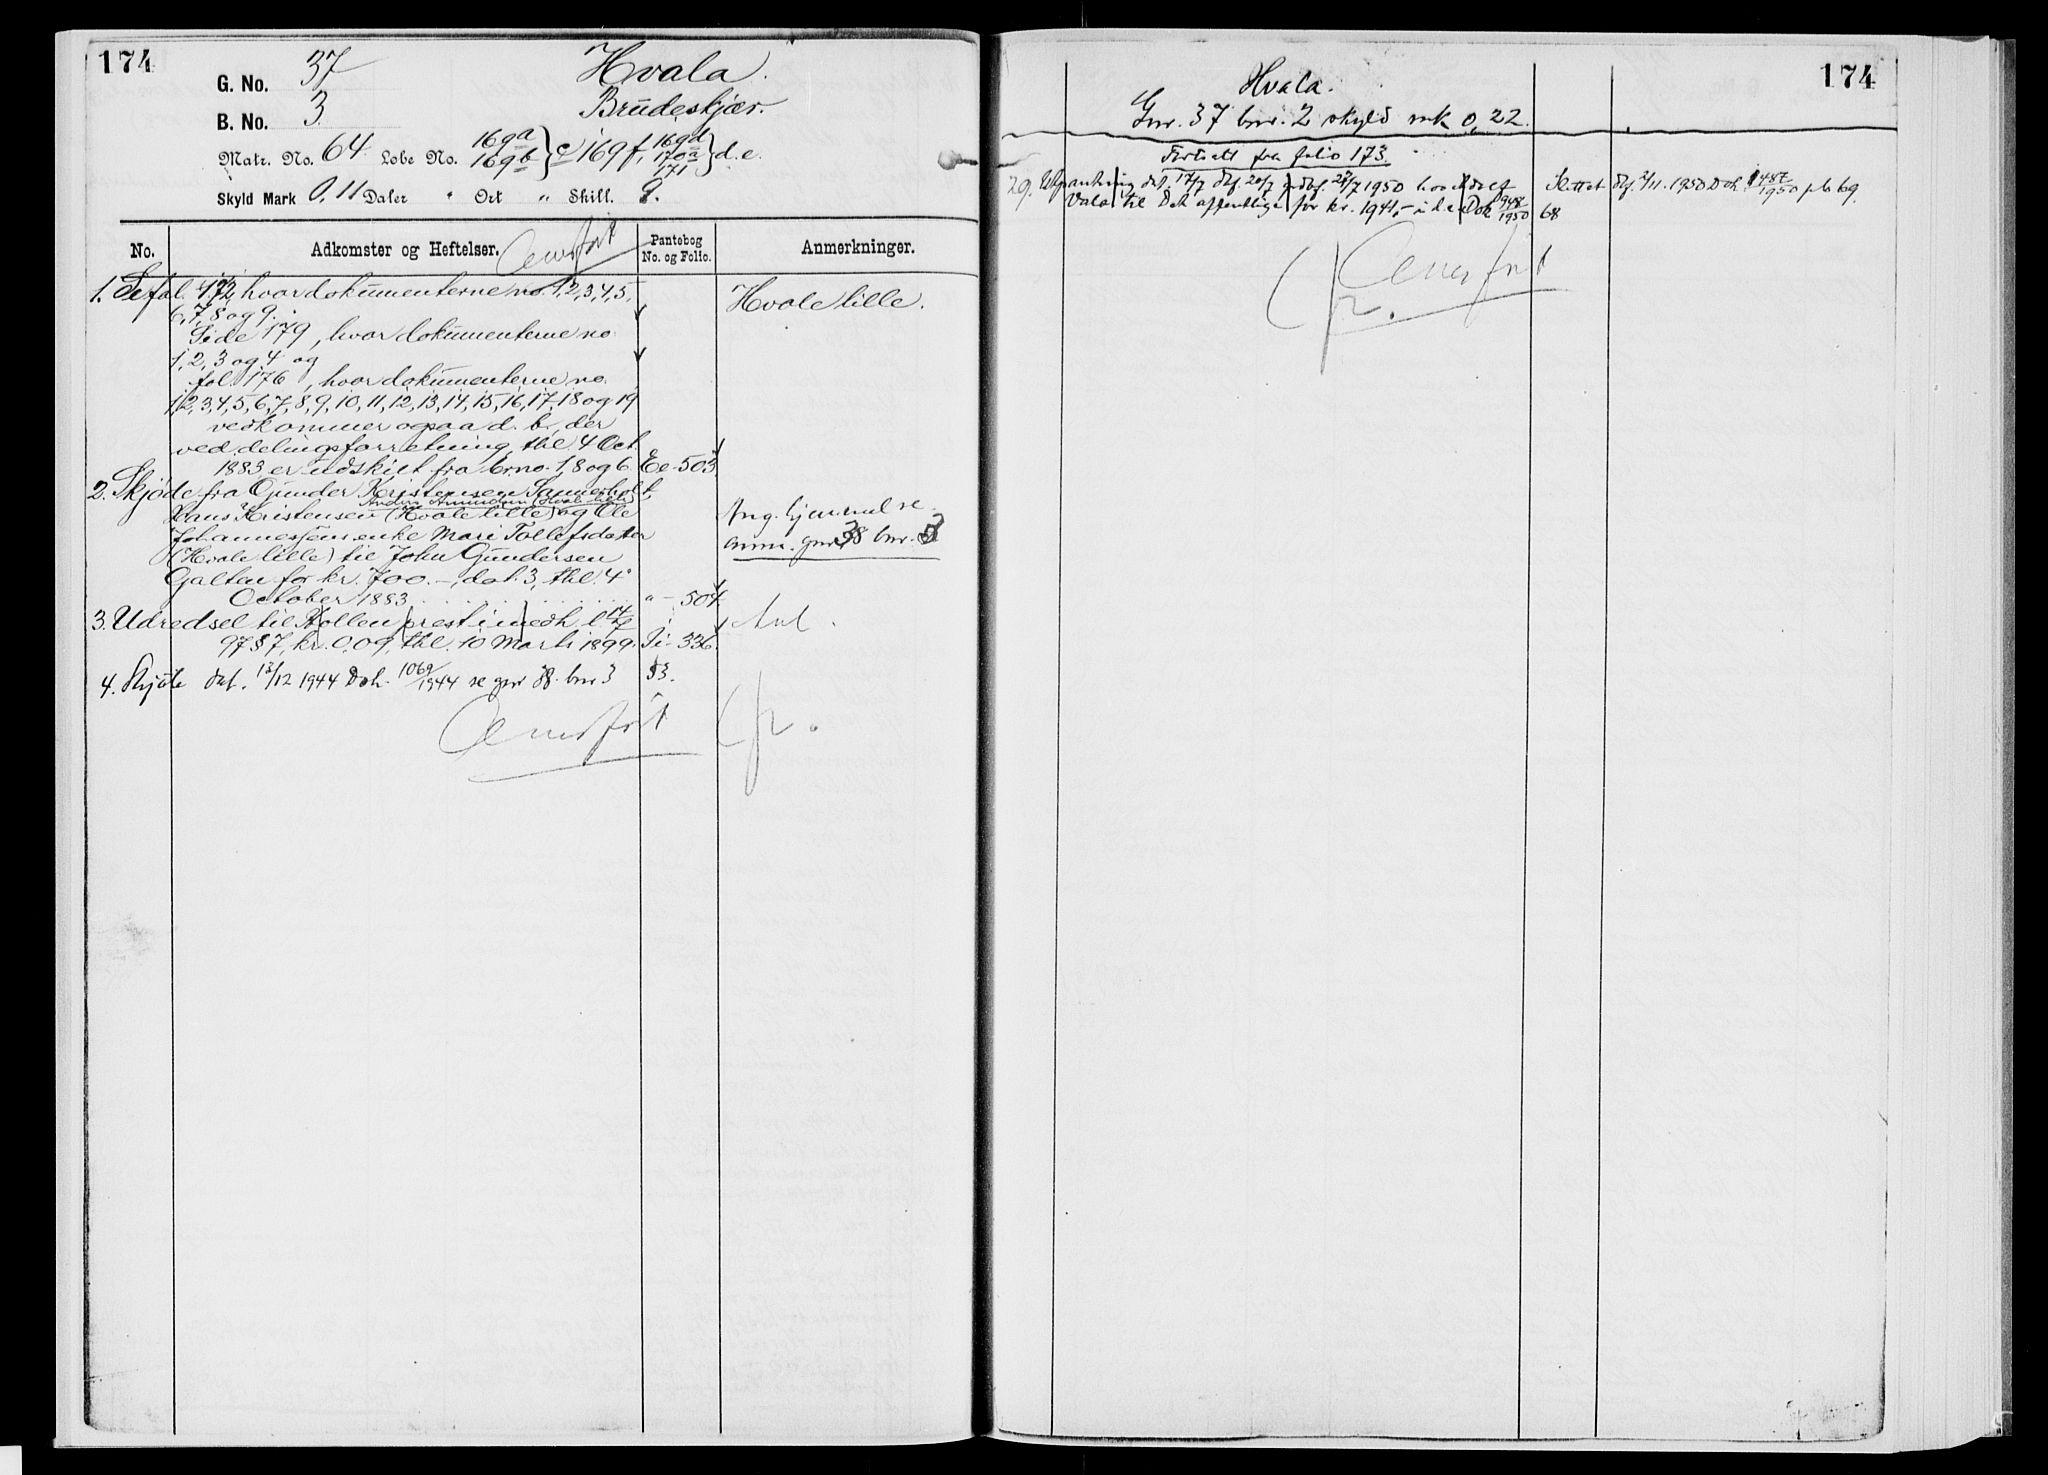 174
G. No. 37 Hvala.
B. No. 3. Brudeskjær.
Matr. No. 64 Løbe No. 169a 169b } c 169f, 169d 170a 171 } d.e.
Skyld Mark 0.11 Daler " Ort " Skill. 8.
No. Adkomster og Heftelser. Pantebog No. og Folio. Anmerkninger.
Overført
1. Se fol. 172, hvor dokumenterne no. 1, 2, 3, 4, 5, Hvale lille.
6, 7, 8 og 9.
Side 179, hvor dokumenterne no.
1, 2, 3 og 4 og
fol. 176, hvor dokumenterne no.
1, 2, 3, 4, 5, 6, 7, 8, 9, 10, 11, 12, 13, 14, 15, 16, 17, 18 og 19
vedkommer ogsaa d. b., der
ved delingsforretning, thl. 4 Oct.
1883 er udskilt fra brno. 1, 8 og 6. Ee - 503
2. Skjøde fra Gunder Kristensen
Anders Amundsen (Hvale lille)
Hans Kristensen (Hvale lille) og Ole Ang. hjemmel se
Johannessens enke Mari Tollefsdatter anm. gnr 38 bnr.
(Hvale lille) til John Gundersen
Galten for kr. 700.-, dat. 3, thl. 4
October 1883 " - 504
3. Udredsel til Hollen prest i medh. l. 14/7
97 § 7, kr. 0.09, thl. 10 Marts 1899. Ii - 336.
4. Skjøte dat. 13/12 1944 Dok. 1069/1944 se gnr 38 bnr 3 53.
Overført
174
Hvala.
Gnr. 37 bnr. 2 skyld mk 0,22.
Fortsatt fra folio 173.
29. Utpantning dat. 17/7 dbf. 20/7 1950 hos Slettet dbf. 2/11.1950 Dok. 1487/1950 pb. 69.
Vala til Det offentlige for kr. 1941,- Dok 948/1950 68
Overført